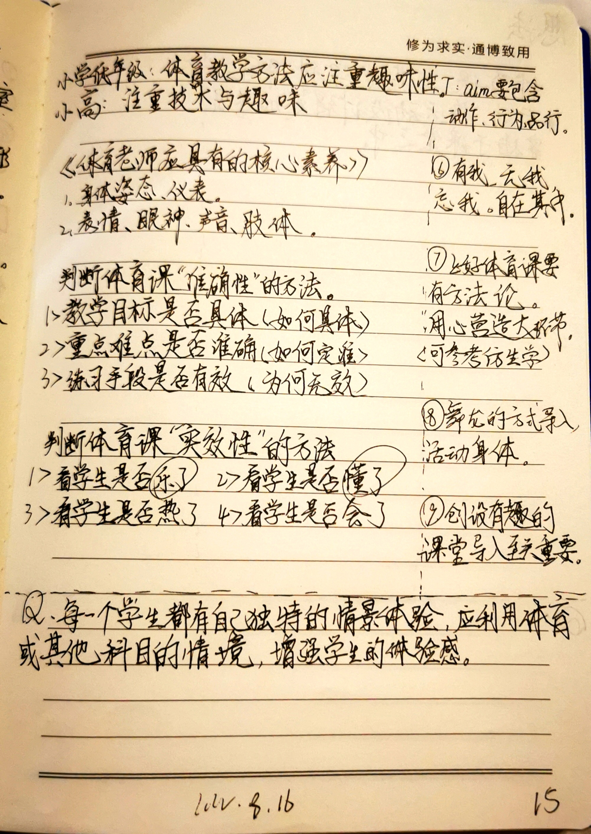 修为求实·通博致用
小学低年级：体育教学方法应注重趣味性。
小高：注重技术与趣味
《体育老师应具有的核心素养》
1、身体姿态、仪表。
2、表情、眼神、声音、肢体。
判断体育课“准确性”的方法。
1>教学目标是否具体（如何具体）
2>重点难点是否准确（如何定准）
3>练习手段是否有效（为何无效）
判断体育课“实效性”的方法
1>看学生是否乐了 2>看学生是否懂了
3>看学生是否热了 4>看学生是否会了
T：aim要包含
动作、行为、品行。
⑥有我、无我
忘我。自在其中。
⑦上好体育课要
有方法论。
用心营造大环节，
（可参考仿生学）
⑧舞龙的方式导入
活动身体。
⑨创设有趣的
课堂导入至关重要。
Q、每一个学生都有自己独特的情景体验，应利用体育
或其他科目的情境，增强学生的体验感。
8.16
15